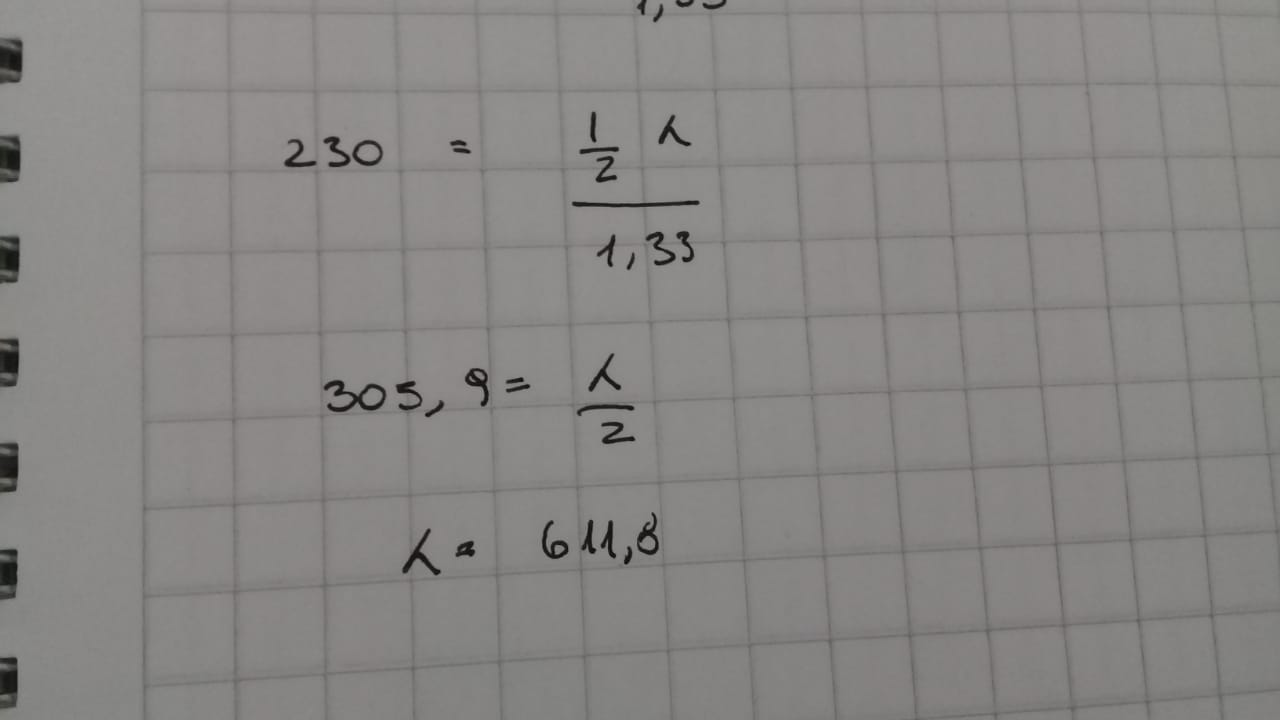 230 = 1/2 λ / 1,33
305,9 = λ/2
λ = 611,8